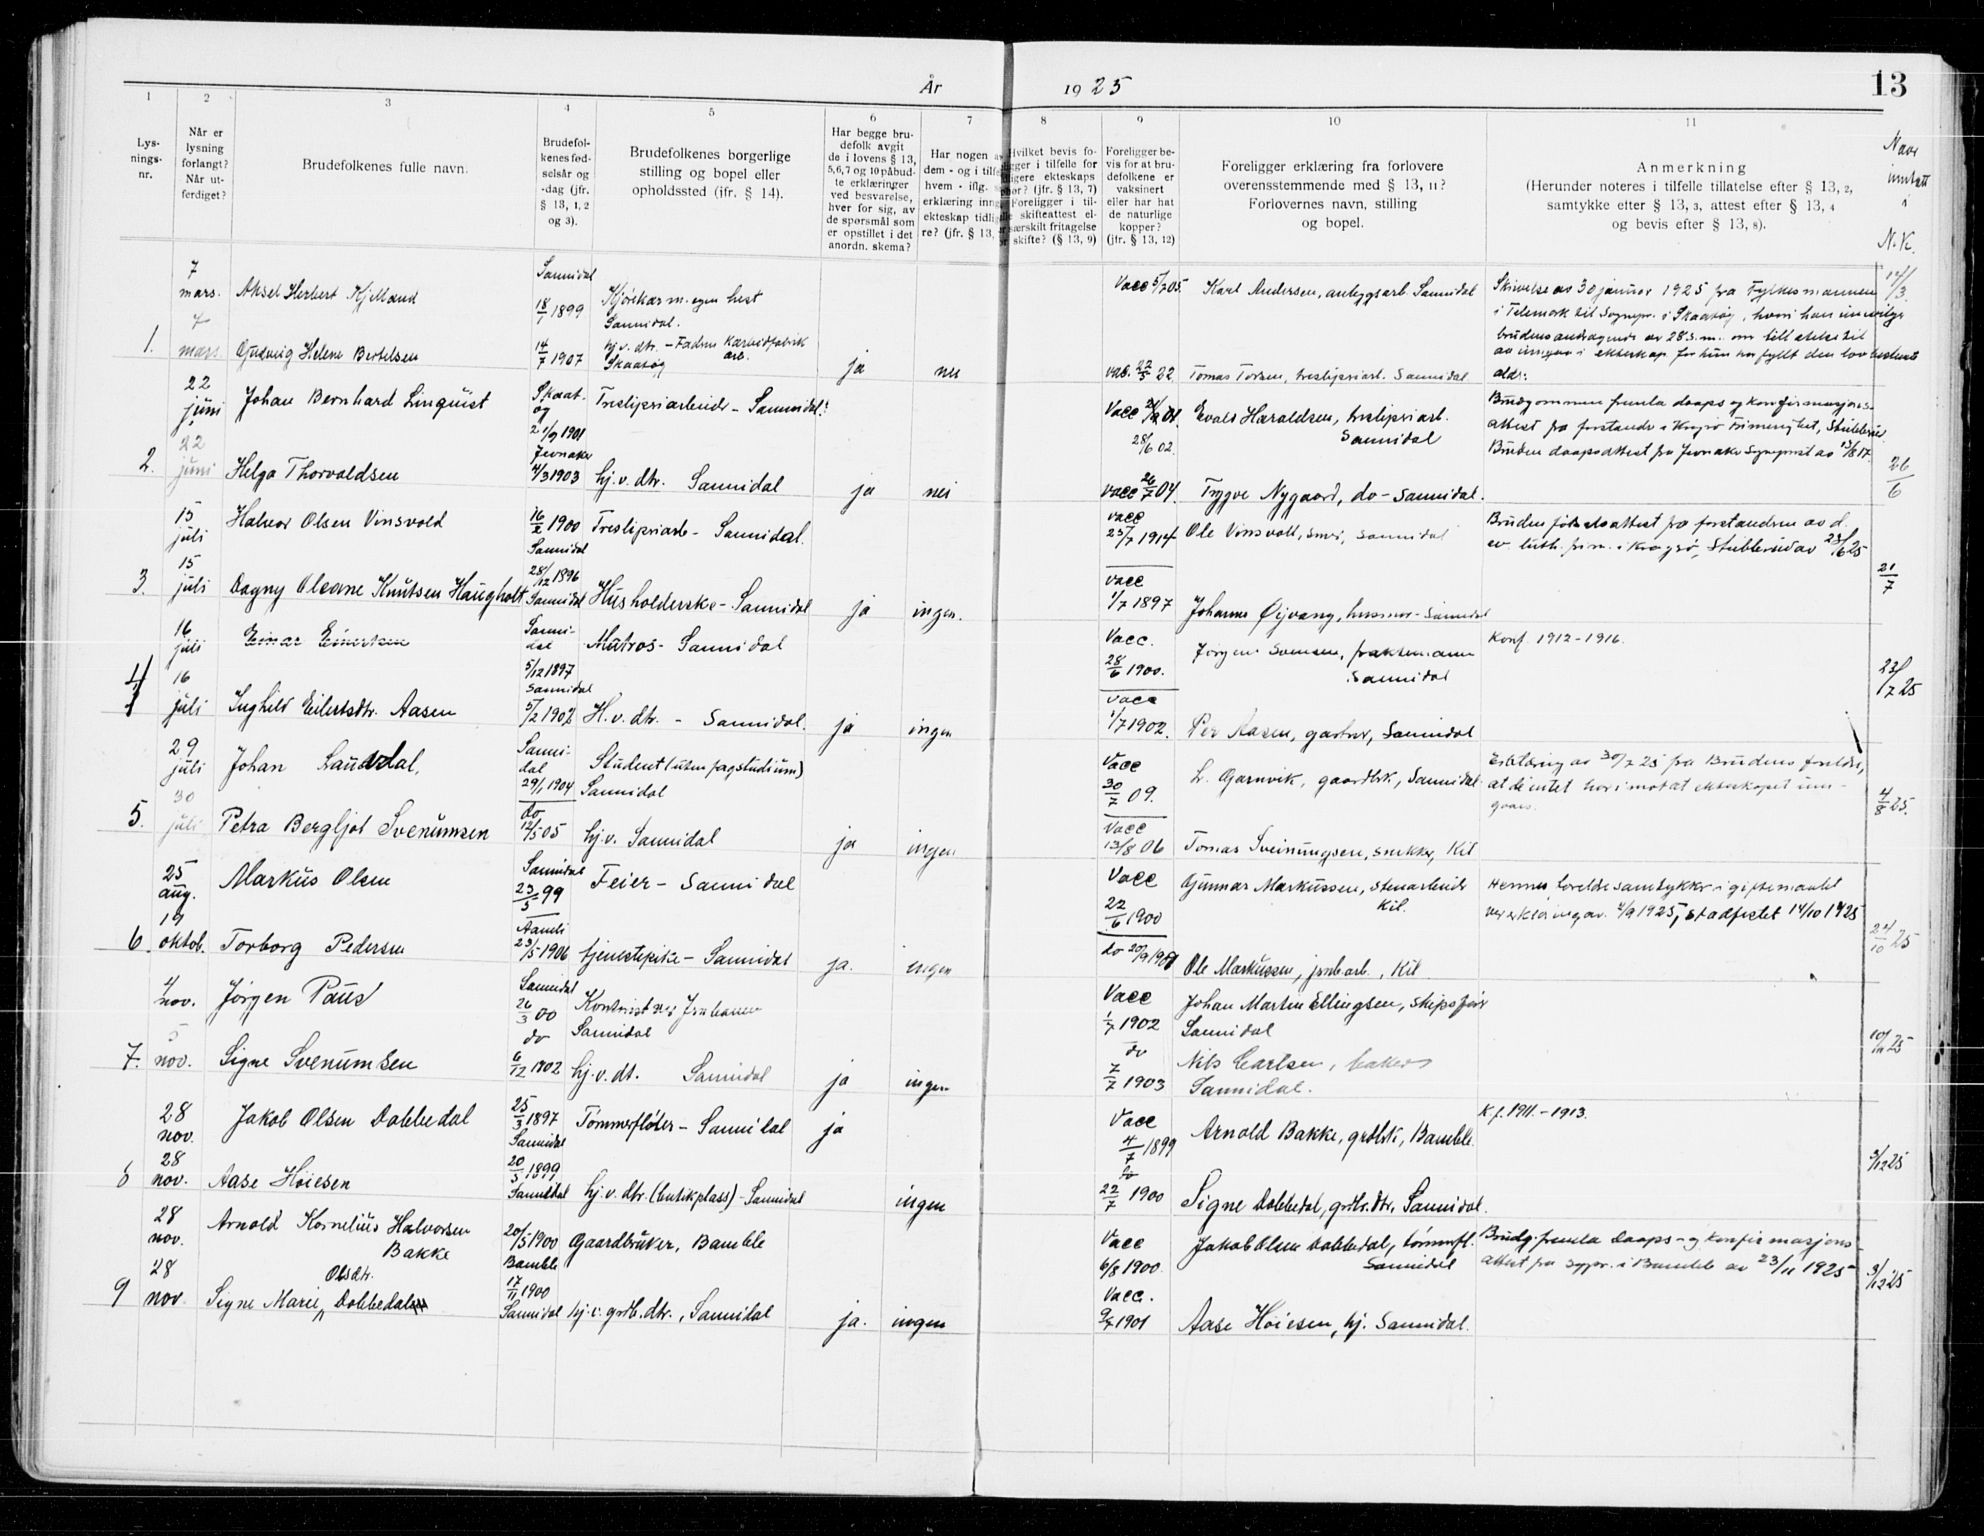 År 1925
13
1 2 3 4 5 6 7 8 9 10 11
Lys-
nings-
nr.
Når er
lysning
forlangt?
Når ut-
ferdiget?
Brudefolkenes fulle navn.
Brudefol-
kenes fød-
selsår og
-dag (jfr.
§ 13, 1, 2
og 3).
Brudefolkenes borgerlige
stilling og bopel eller
opholdssted (jfr. § 14).
Har begge bru-
defolk avgit
de i lovens § 13,
5, 6, 7 og 10 påbud-
te erklæringer
ved besvarelse,
hver for sig, av
de spørsmål som
er opstillet i det
anordn. skema?
Har nogen av
dem - og i tilf
hvem - iflg. s
erklæring inng
ekteskap tidlig
re? (jfr. § 13,
Hvilket bevis fo-
ligger i tilfelle for
ligere ekteskaps
hør? (jfr. § 13, 7)
Foreligger i til-
le skifteattest el-
særskilt fritagelse
r skifte? (§ 13, 9)
Foreligger be-
vis for at bru-
defolkene er
vaksinert
eller har hat
de naturlige
kopper?
(jfr. § 13, 12)
Foreligger erklæring fra forlovere
overensstemmende med § 13, 11?
Forlovernes navn, stilling
og bopel.
Anmerkning
(Herunder noteres i tilfelle tillatelse efter § 13, 2,
samtykke efter § 13, 3, attest efter § 13, 4
og bevis efter § 13, 8).
Naar
i
N.K.
7 mars. Aksel Herbert Sannidal 18/1 1899 Kjørekar m. egen hest Sannidal. Vacc 5/7 05. Karl Andersen, anlegsarb. Sannidal
Skrivelse av 30 januar 1925 fra Fylkesmannen
i Telemark til Sognepr. i Skaatøy, hvori han innvilger
brudens andragende av 28. s.m. om tillatelse til
aa inngaa i ekteskap før hun har fyllt den lovbestemte
alder.
1. 7 mars. Gudveig Helene Bertelsen 14/7 1907 hj.v. dtr. - Fadren Karbidfabrik arb. Skaatøy ja nei vac. 22/5 22 Tomas Torsen, tresliperiarb. Sannidal
22 juni Johan Bernhard Linquist Skaatøy 21/9 1901 Tresliperiarbeider - Sannidal. Vacc 28/6 02. Evald Haraldsen, tresliperiarb. Sannidal
Brudgommen fremla daaps og konfirmasjons-
attest fra forstander i Kragerø Frimenighet, Stubberud
Bruden daapsattest fra Jevnaker Sogneprest av
26/6
2. 22 juni Helga Thorvaldsen Jevnaker 4/3 1903 hj.v. dtr. Sannidal ja nei vacc 26/7 04. Trygve Nygaard, do - Sannidal.
15 juli Halvor Olsen Vinsvold 16/2 1900 Sannidal Tresliperiarb - Sannidal. vacc 25/7 1914 Ole Vinsvoll, smed, Sannidal
Bruden fødselsattest fra forstandren av d.
ev. luth. frim. i Kragerø, Stubberud av 23/6 25
21/7
3. 15 juli Dagny Oleane Knutsen Haugholt 28/12 1896 Sannidal Husholderske - Sannidal ja ingen. vacc 1/7 1897 Johannes Øyvang, husmor - Sannidal
16 juli Einar Sannidal 5/12 1897 Matros - Sannidal Vacc. 28/6 1900. Jørgen Svensen, fraktemann Sannidal
Konf. 1912-1916.
23/7 25
4 16 juli Inghild Eilertsdtr. Aasen Sannidal 5/2 1902 H.v. dtr. - Sannidal. ja ingen vacc 1/7 1902. Per Aasen, gartner, Sannidal
29 juli Johan Sannidal 29/1 1904 Student (uten fagstudium) Sannidal Vacc 30/7 09. L. Garnvik, gaardbk, Sannidal
Erklæring av 30/7 25 fra Brudens foreldre,
at de intet har imot at ekteskapet inn-
gaaes.
4/8 25.
5. 30 juli Petra Bergljot Svenumsen do 12/5 05 hj.v. Sannidal ja ingen vacc 13/8 06 Tomas Sveinungsen, snekker, Kil
25 aug. Markus Olsen Sannidal 23/5 99 Feier - Sannidal Vacc 22/6 1900 Gunnar Markussen, stenarbeider Kil.
Hennes forelder samtykker i giftermaalet
ved erklæring av. 4/9 1925, stadfestet 14/10 1925
24/10 25
6. 19 oktob. Torborg Pedersen Aamli 23/5 1906 tjenestepike - Sannidal ja. ingen do 20/9 Ole Markussen, jernb arb., Kil
4 nov. Jørgen Paus Sannidal 26/3 00 Kontorist ved Jernbanen Sannidal Vacc 1/7 1902 Johan Martin Ellingsen, skipsfører Sannidal
10/11 25
7. 5 nov. Signe Svenumsen do 6/12 1902 hj.v. dt. Sannidal ja ingen do 7/7 1903 Nils Carlsen, baker Sannidal.
28 nov. Jakob Olsen Dobbedal 25/3 1897 Sannidal Tømmerfløter - Sannidal ja Vacc 4/7 1899 Arnold Bakke, grdbk, Bamble.
K.f. 1911. - 1913.
3/12 25
8 28 nov. Aase Høiesen 20/5 1899 Sannidal hj.v. dtr. (butikplass) - Sannidal ingen do 22/7 1900 Signe Dobbedal, grdbr. dtr., Sannidal.
28 nov. Arnold Kornelius Halvorsen Bakke 20/5 1900 Bamble Gaardbruker, Bamble Vacc 6/8 1900 Jakob Olsen Dobbedal, tømmerfl. Sannidal
Brudg. fremla Daaps- og konfirmasjons-
attest fra sogpr. i Bamble av 23/11 1925
3/12 25
9 28 nov. Signe Marie Olsdtr. Dobbedal 17/11 1900 Sannidal hj.v. grdb. dtr., Sannidal ja. ingen Vacc. 9/7 1901 Aase Høiesen, hj. Sannidal.